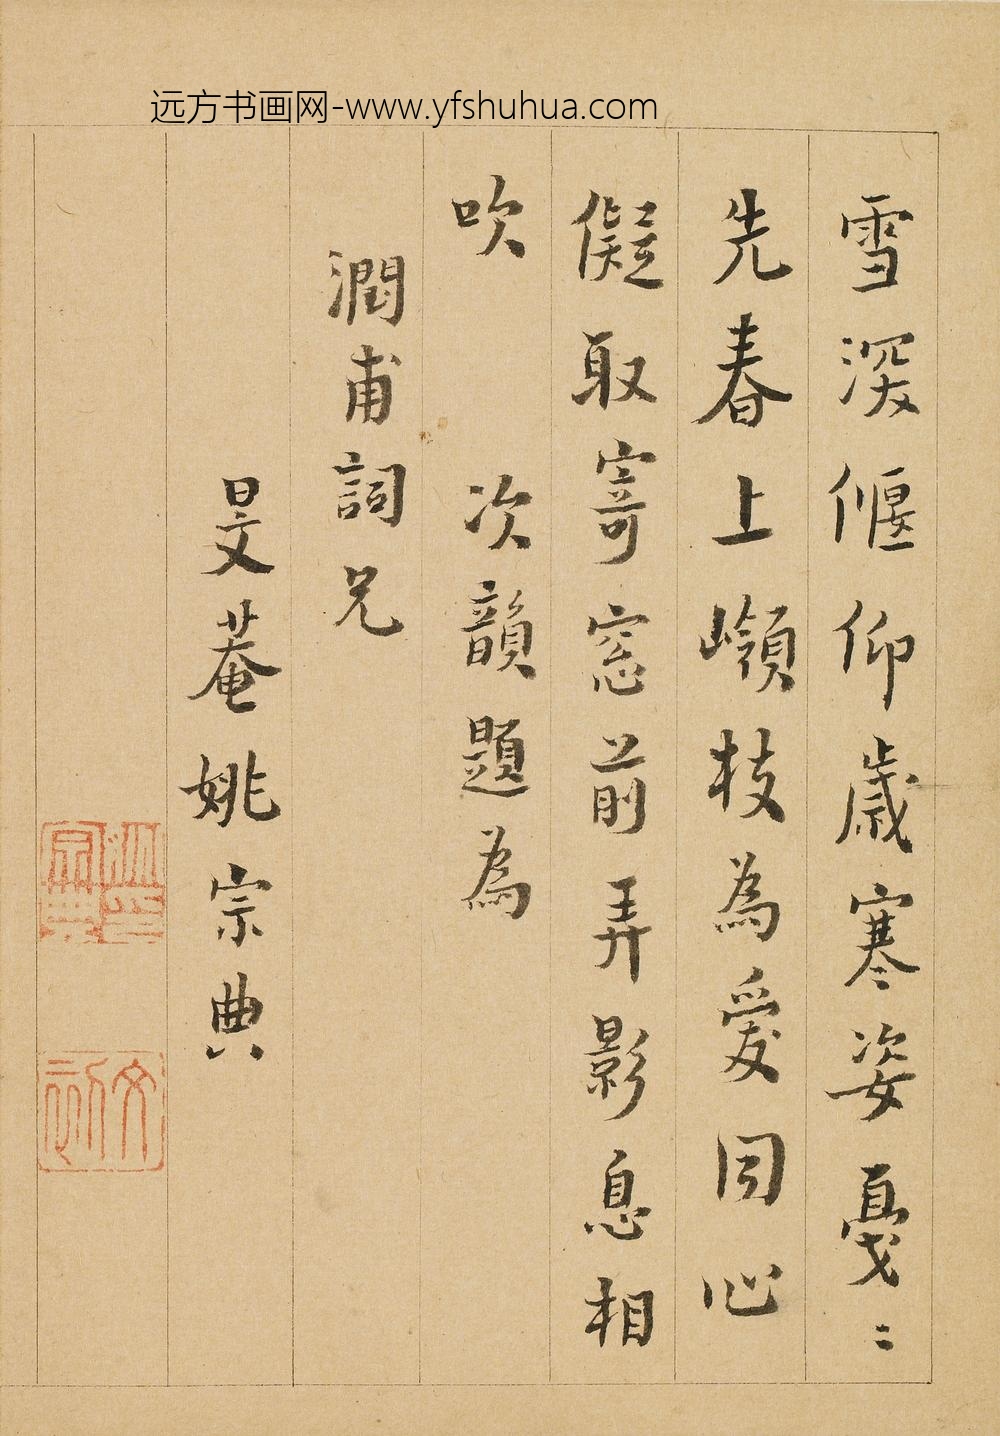 远方书画网-www.yfshuhua.com
雪深偃仰歲寒姿戞〻
先春上嶺枝為愛同心
儗取寄窓前弄影息相
吹　次韻題為
潤甫詞兄
旻菴姚宗典
姚宗典印
文初